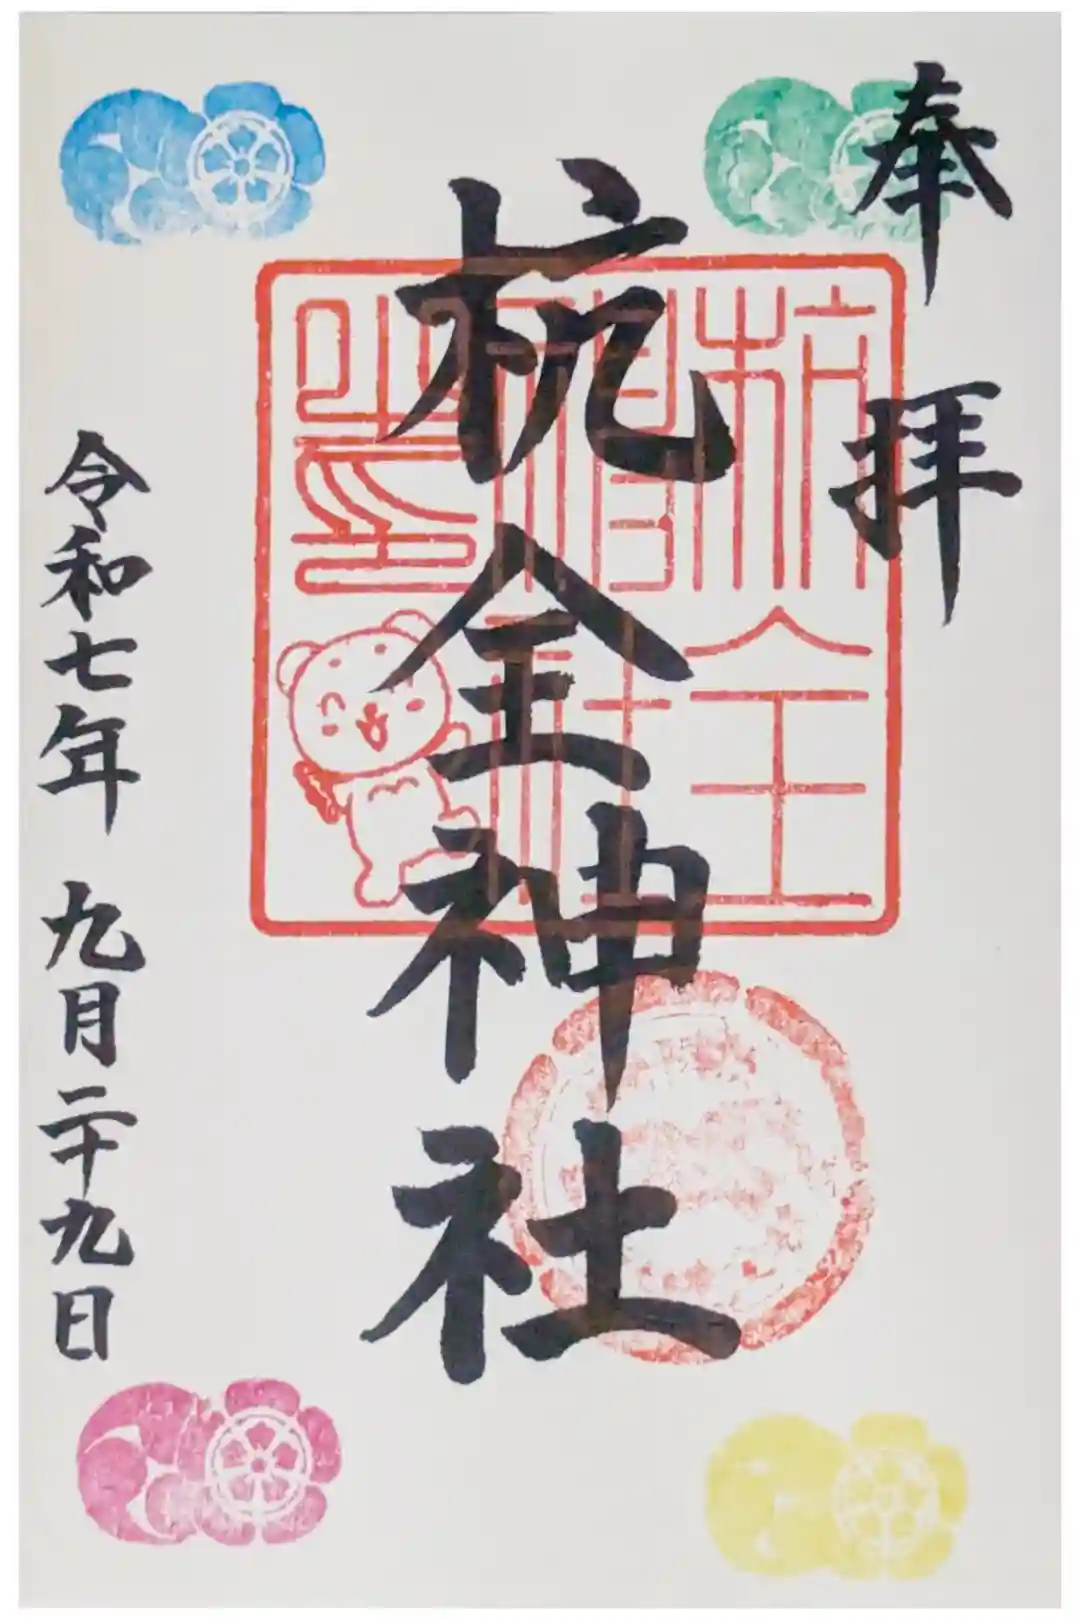 奉拝
杭全神社
杭全神社印
令和七年 九月二十九日